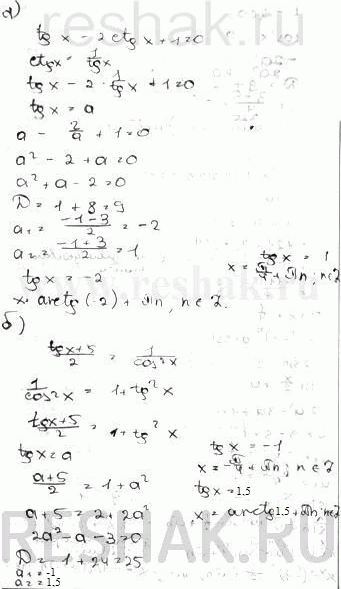 а)
tg x - 2ctg x + 1 = 0
ctg x = 1/tg x
tg x - 2 · 1/tg x + 1 = 0
tg x = a
a - 2/a + 1 = 0
a² - 2 + a = 0
a² + a - 2 = 0
D = 1 + 8 = 9
a₁ = (-1-3)/2 = -2
a₂ = (-1+3)/2 = 1
tg x = -2
x = arctg(-2) + πn, n ∈ Z.
tg x = 1
x = π/4 + πn, n ∈ Z
б)
(tg x + 5)/2 = 1/cos²x
1/cos²x = 1 + tg²x
(tg x + 5)/2 = 1 + tg²x
tg x = a
(a+5)/2 = 1 + a²
a + 5 = 2 + 2a²
2a² - a - 3 = 0
D = 1 + 24 = 25
a₁ = -1
a₂ = 1,5
tg x = -1
x = -π/4 + πn; n ∈ Z
tg x = 1,5
x = arctg1,5 + πn, n ∈ Z
reshak.ru
RESHAK.RU